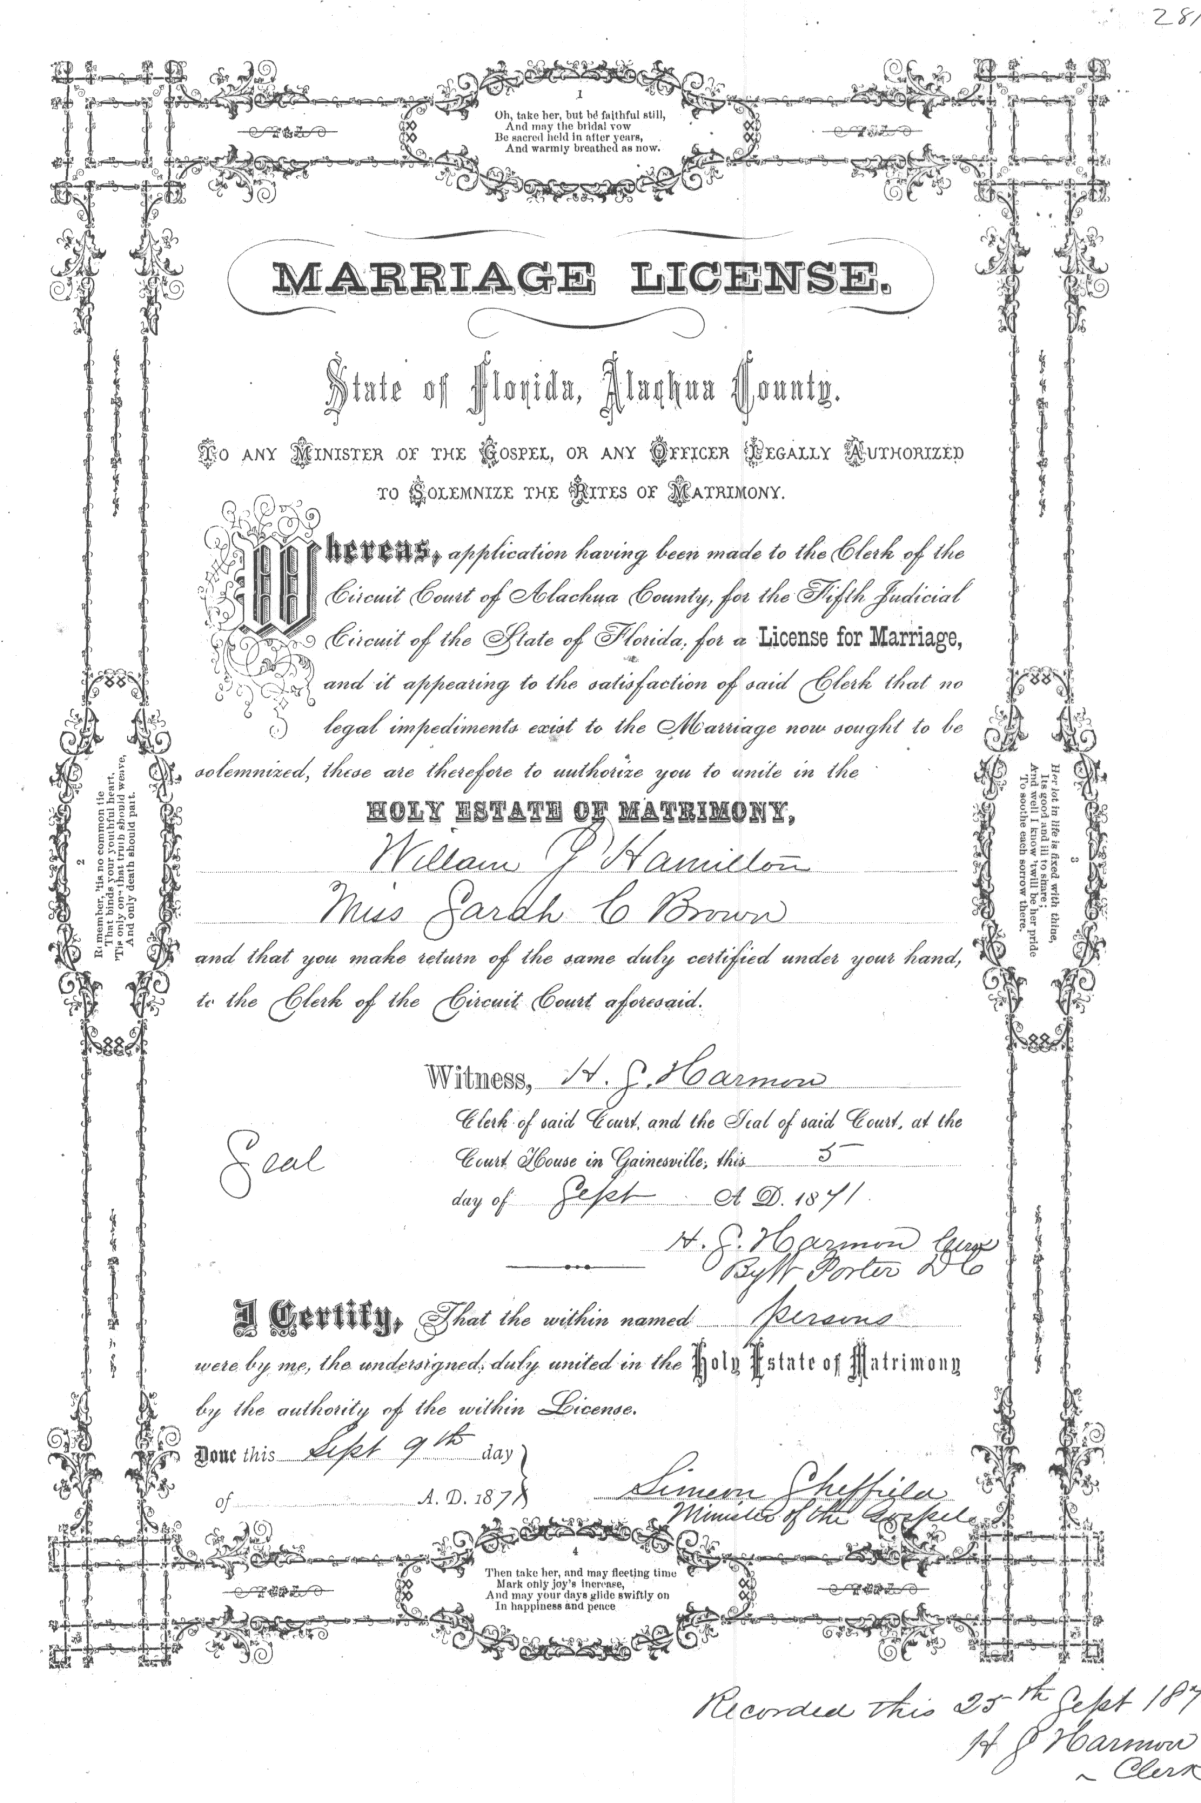 281
1
Oh, take her, but be faithful still,
And may the bridal vow
Be sacred held in after years,
And warmly breathed as now.
MARRIAGE LICENSE.
State of Florida, Alachua County.
TO ANY MINISTER OF THE GOSPEL, OR ANY OFFICER LEGALLY AUTHORIZED
TO SOLEMNIZE THE RITES OF MATRIMONY.
Whereas, application having been made to the Clerk of the
Circuit Court of Alachua County, for the Fifth Judicial
Circuit of the State of Florida, for a License for Marriage,
and it appearing to the satisfaction of said Clerk that no
legal impediments exist to the Marriage now sought to be
solemnized, these are therefore to authorize you to unite in the
HOLY ESTATE OF MATRIMONY,
William J Hamilton
Miss Sarah C Brown
and that you make return of the same duly certified under your hand,
to the Clerk of the Circuit Court aforesaid.
2
Remember, 'tis no common tie
That binds your youthful heart,
'Tis only one that truth should weave,
And only death should part.
3
Her lot in life is fixed with thine,
Its good and ill to share;
And well I know 'twill be her pride
To soothe each sorrow there.
Witness, H. S. Harmon
Clerk of said Court, and the Seal of said Court, at the
Seal
Court House in Gainesville, this 5
day of Sept A. D. 1871.
H. S. Harmon Clerk
By W Porter D C
I Certify, That the within named persons
were by me, the undersigned, duly united in the Holy Estate of Matrimony
by the authority of the within License.
Done this Sept 9th day
of A. D. 1871
Simeon Sheffield
Minister of the Gospel
4
Then take her, and may fleeting time
Mark only joy's increase,
And may your days glide swiftly on
In happiness and peace
Recorded this 25th Sept 187
H S Harmon
Clerk